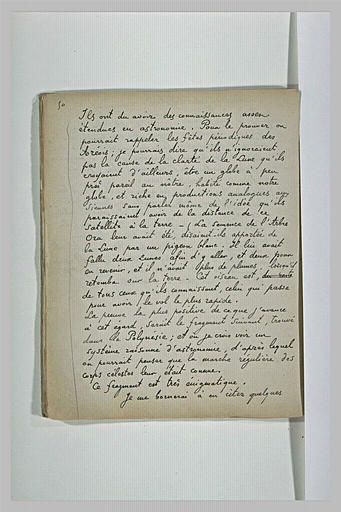 50
Ils ont du avoir des connaissances assez
étendues en astronomie. Pour le prouver on
pourrait rappeler les fêtes périodiques des
Aréois ; je pourrais dire qu'ils n'ignoraient
pas la cause de la clarté de la Lune qu'ils
croyaient d'ailleurs, être un globe à peu
près pareil au nôtre, habité comme notre
globe, et riche en productions analogues aux
siennes sans parler même de l'idée qu'ils
paraissaient avoir de la distance de ce
satellite à la terre - (La semence de l'Arbre
Ora leur avait été, disaient-ils apportée de
la Lune par un pigeon blanc. Il lui avait
fallu deux Lunes afin d'y aller, et deux pour
en revenir, et il n'avait plus de plumes lorsqu'il
retomba sur la terre. Cet oiseau est,
de tous ceux qu'ils connaissent, celui qui passe
pour avoir le vol le plus rapide.
La preuve la plus positive de ce que j'avance
à cet égard, serait le fragment suivant, trouvé
dans la Polynésie ; et où je crois voir un
système raisonné d'astronomie, d'après lequel
on pourrait penser que la marche régulière des
corps célestes leur était connue.
Ce fragment est très énigmatique.
Je me bornerai à en citer quelques